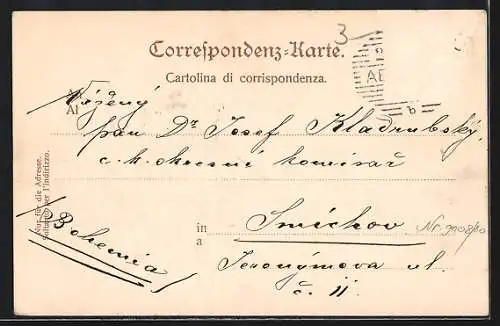 3
Correspondenz-Karte.
Cartolina di corrispondenza.
AE
An
Al
Vážený
pan Dr Josef Kladrubský,
c. k. okresní komisař
in
a
Smíchov
Jeronýmova ul.
č. 11.
(Bohemia)
Nur für die Adresse.
Soltanto per l'indirizzo.